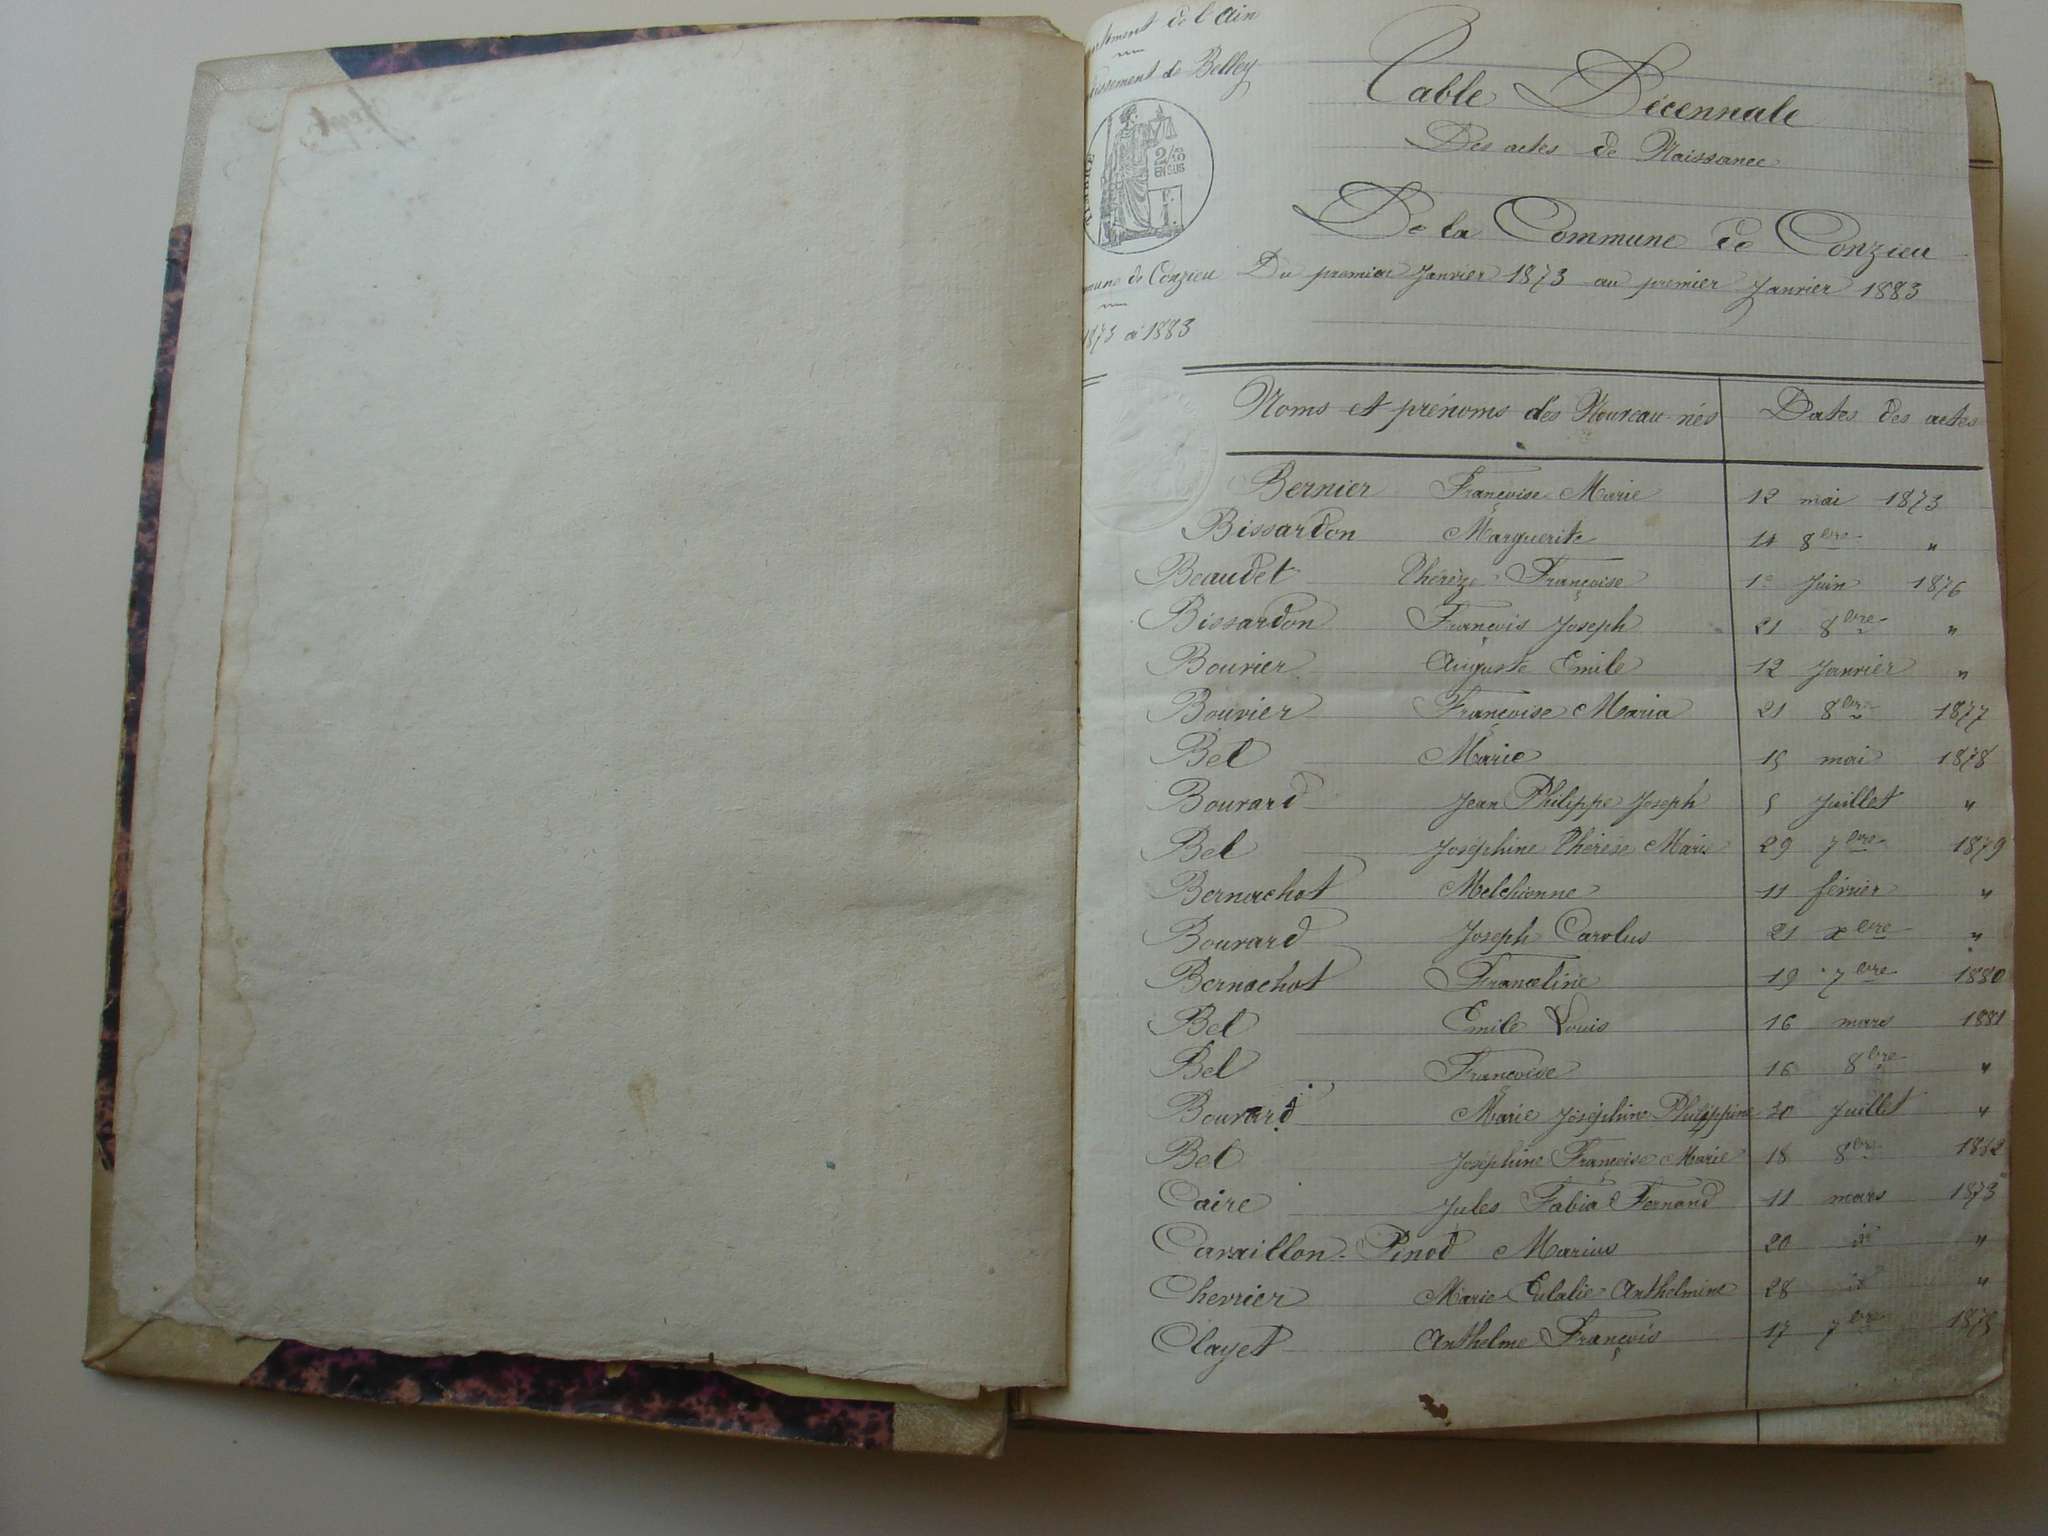 Département de l'Ain
Arrondissement de Belley
TIMBRE
2/10
EN SUS
1 F.
Commune de Conzieu
1873 à 1883
Table Décennale
Des actes de Naissance
De la Commune de Conzieu
Du premier Janvier 1873 au premier Janvier 1883
Noms et prénoms des Nouveau-nés Dates des actes
Bernier Françoise Marie 12 mai 1873
Bissardon Marguerite 14 8bre "
Beaudet Thérèze Françoise 1er Juin 1876
Bissardon François Joseph 21 8bre "
Bouvier Auguste Emile 12 Janvier "
Bouvier Françoise Maria 21 8bre 1877
Bel Marie 15 mai 1878
Bouvard Jean Philippe Joseph 5 Juillet "
Bel Joséphine Thérèse Marie 29 7bre 1879
Bernachot Melchionne 11 février "
Bouvard Joseph Carolus 21 xbre "
Bernachot Franceline 19 7bre 1880
Bel Emile Louis 16 mars 1881
Bel Françoise 16 8bre "
Bouvard Marie Joséphine Philippine 30 Juillet "
Bel Joséphine Françoise Marie 18 8bre 1882
Caire Jules Fabia Fernand 11 mars 1873
Cavaillon-Pinod Marius 20 id "
Chevrier Marie Eulalie Anthelmine 28 id "
Clayet Anthelme François 17 7bre 1875